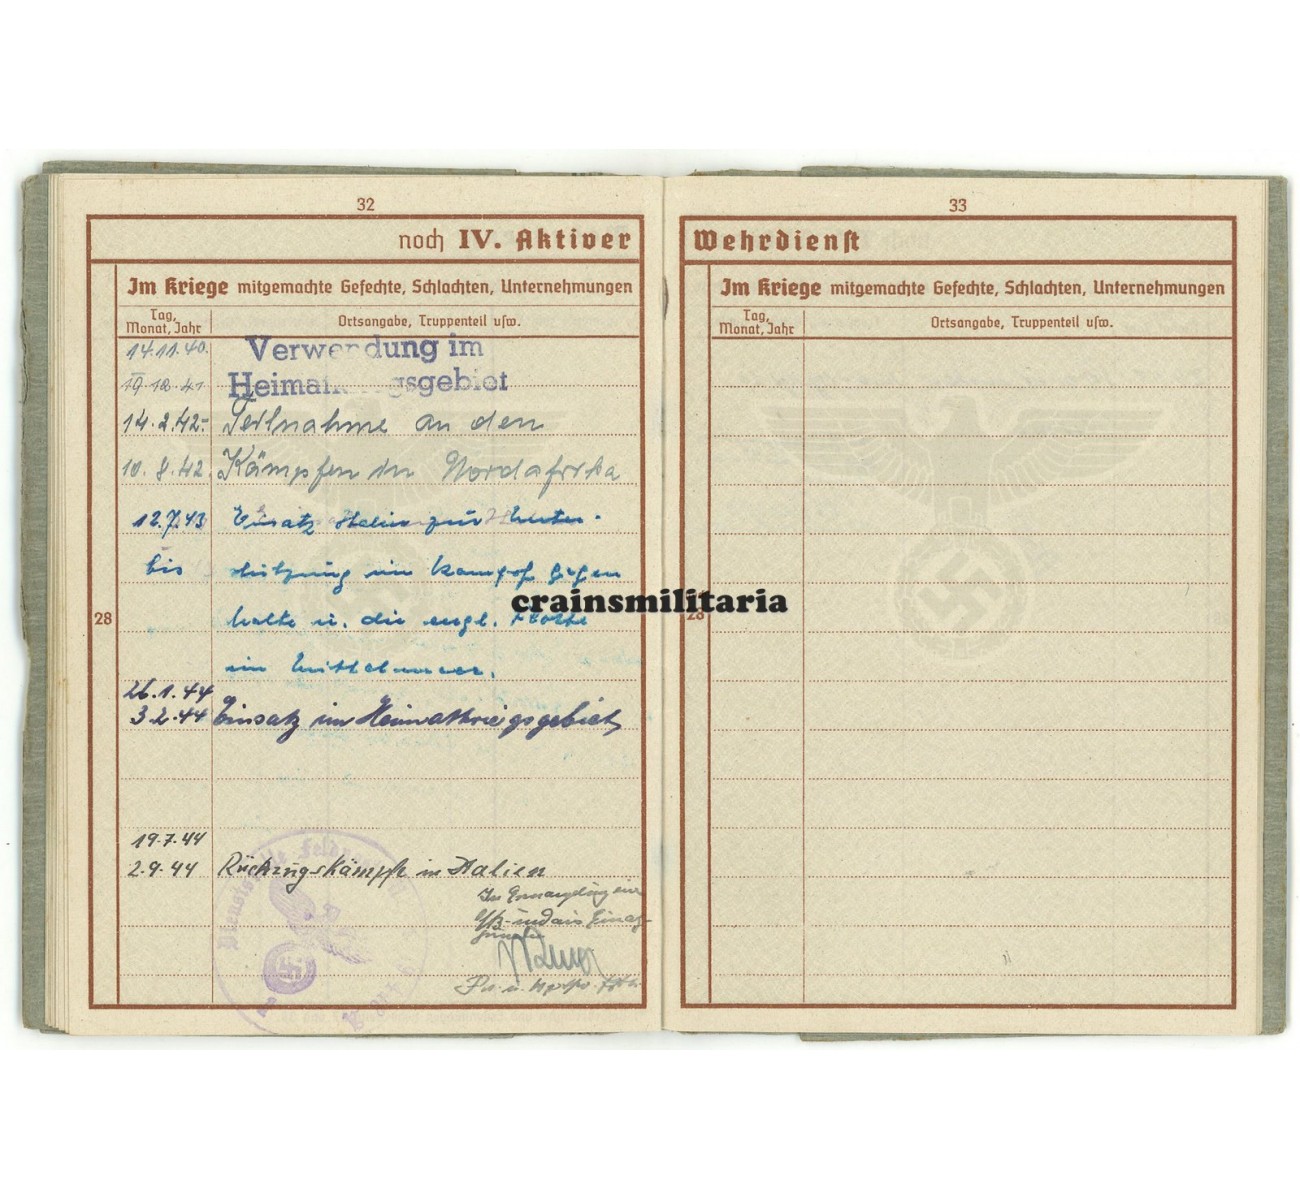 32
noch IV. Aktiver
Im Kriege mitgemachte Gefechte, Schlachten, Unternehmungen
Tag, Monat, Jahr
Ortsangabe, Truppenteil usw.
14.11.40. Verwendung im
19.12.41 Heima gsgebiet
14.2.42- Teilnahme an den
10.8.42. Kämpfen in Nordafrika
12.7.43 Einsatz Italien zur Unter-
bis stützung im Kampf gegen
28
Malta u. die engl. Flotte
im Mittelmeer.
26.1.44
3.2.44 Einsatz im Heimatkriegsgebiet
19.7.44
2.9.44 Rückzugskämpfe in Italien
Dienststelle Feldpost
33
Wehrdienst
Im Kriege mitgemachte Gefechte, Schlachten, Unternehmungen
Tag, Monat, Jahr
Ortsangabe, Truppenteil usw.
28
crainsmilitaria